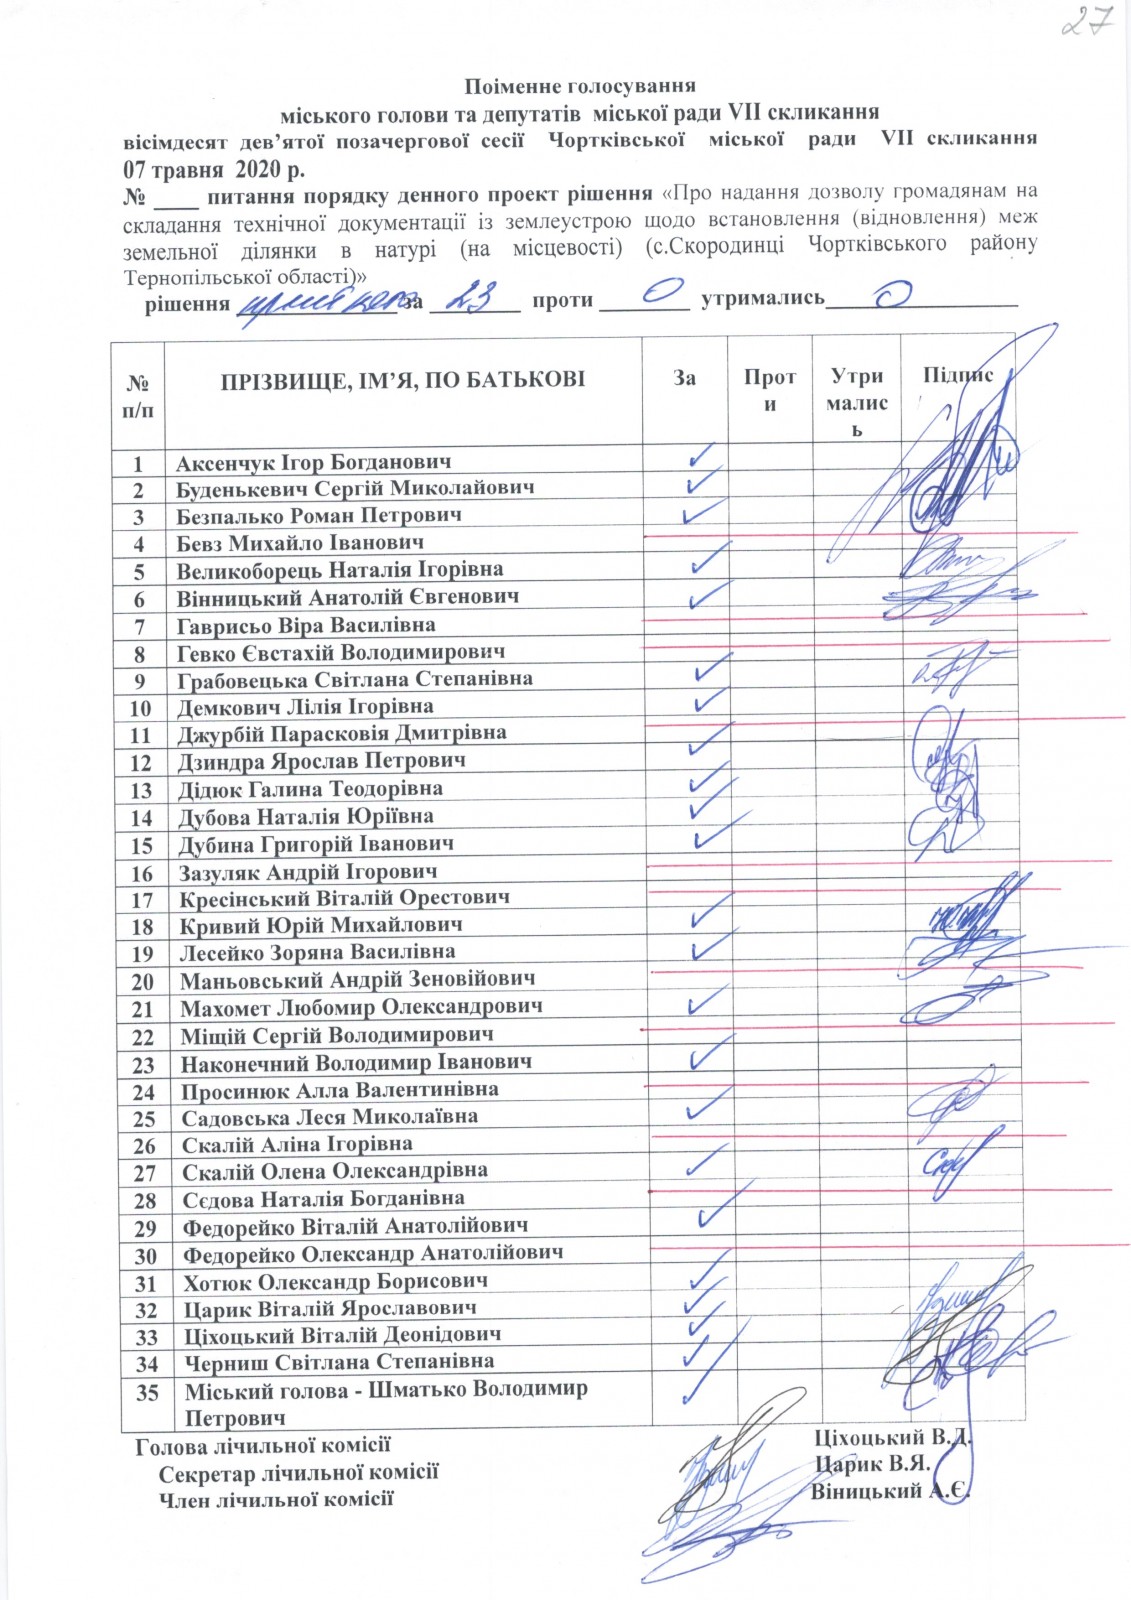 27
Поіменне голосування
міського голови та депутатів міської ради VII скликання
вісімдесят дев’ятої позачергової сесії Чортківської міської ради VII скликання
07 травня 2020 р.
№ ____ питання порядку денного проект рішення «Про надання дозволу громадянам на
складання технічної документації із землеустрою щодо встановлення (відновлення) меж
земельної ділянки в натурі (на місцевості) (с.Скородинці Чортківського району
Тернопільської області)»
рішення прийнято за 23 проти 0 утримались 0
№ п/п ПРІЗВИЩЕ, ІМ’Я, ПО БАТЬКОВІ За Проти Утрималис ь Підпис
1 Аксенчук Ігор Богданович
2 Буденькевич Сергій Миколайович
3 Безпалько Роман Петрович
4 Бевз Михайло Іванович
5 Великоборець Наталія Ігорівна
6 Вінницький Анатолій Євгенович
7 Гаврисьо Віра Василівна
8 Гевко Євстахій Володимирович
9 Грабовецька Світлана Степанівна
10 Демкович Лілія Ігорівна
11 Джурбій Парасковія Дмитрівна
12 Дзиндра Ярослав Петрович
13 Дідюк Галина Теодорівна
14 Дубова Наталія Юріївна
15 Дубина Григорій Іванович
16 Зазуляк Андрій Ігорович
17 Кресінський Віталій Орестович
18 Кривий Юрій Михайлович
19 Лесейко Зоряна Василівна
20 Маньовський Андрій Зеновійович
21 Махомет Любомир Олександрович
22 Міщій Сергій Володимирович
23 Наконечний Володимир Іванович
24 Просинюк Алла Валентинівна
25 Садовська Леся Миколаївна
26 Скалій Аліна Ігорівна
27 Скалій Олена Олександрівна
28 Сєдова Наталія Богданівна
29 Федорейко Віталій Анатолійович
30 Федорейко Олександр Анатолійович
31 Хотюк Олександр Борисович
32 Царик Віталій Ярославович
33 Ціхоцький Віталій Деонідович
34 Черниш Світлана Степанівна
35 Міський голова - Шматько Володимир
Петрович
Голова лічильної комісії Ціхоцький В.Д.
Секретар лічильної комісії Царик В.Я.
Член лічильної комісії Віницький А.Є.